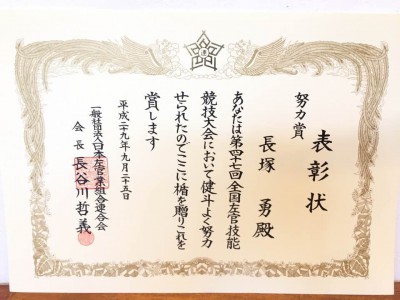 表彰状
努力賞
長塚 勇殿
あなたは第四十七回全国左官技能
競技大会において健斗よく努力
せられたのでここに楯を贈りこれを
賞します
平成二十九年九月二十五日
一般社団法人日本左官業組合連合会
会長 長谷川哲義